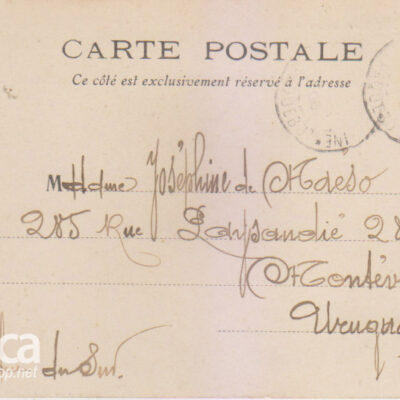 CARTE POSTALE
Ce côté est exclusivement réservé à l'adresse
Madame Joséphine de Maeso
285 Rue Paysandié 28
Montév
Urugua
du Sud.
ca
op.net